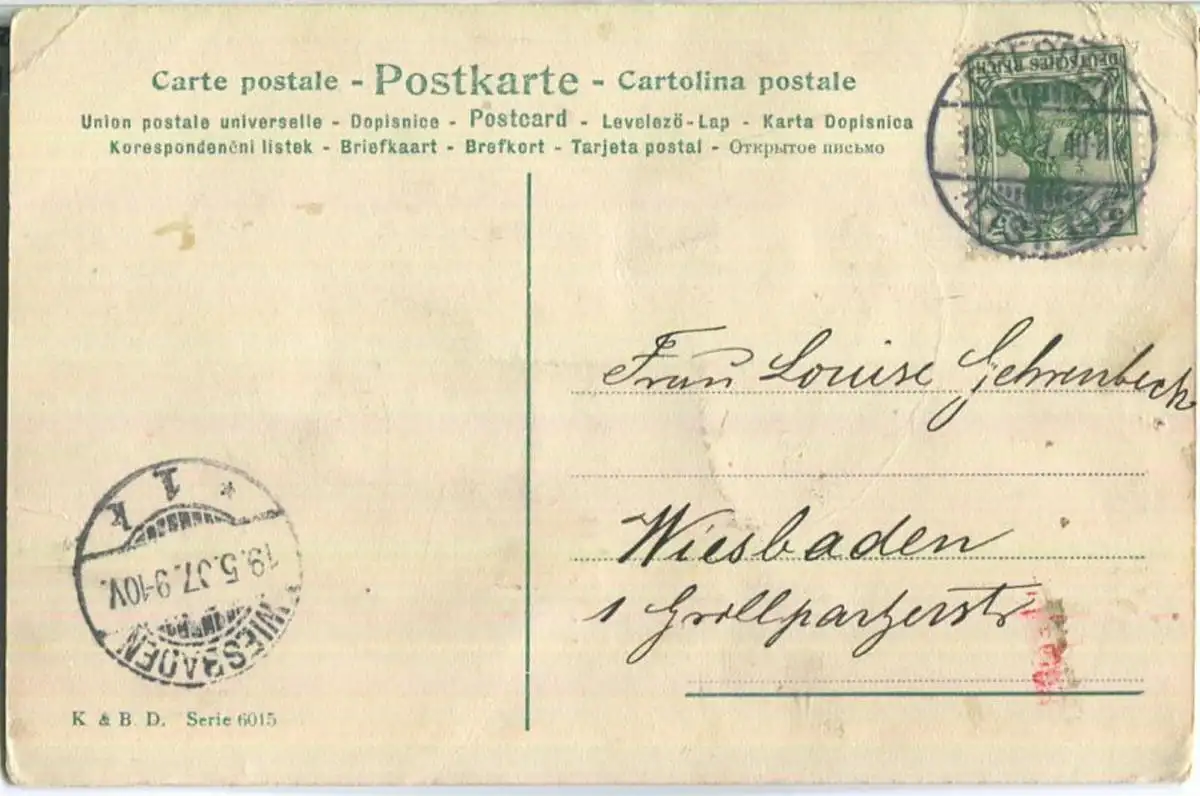 Carte postale - Postkarte - Cartolina postale
Union postale universelle - Dopisnice - Postcard - Levelező-Lap - Karta Dopisnica
Korespondenční listek - Briefkaart - Brefkort - Tarjeta postal - Открытое письмо
DEUTSCHES REICH
Frau Louise Gehrenbeck
Wiesbaden
1 Grillparzerstr
* 1 k
19.5.07. 9-10V.
WIESBADEN
K & B D. Serie 6015